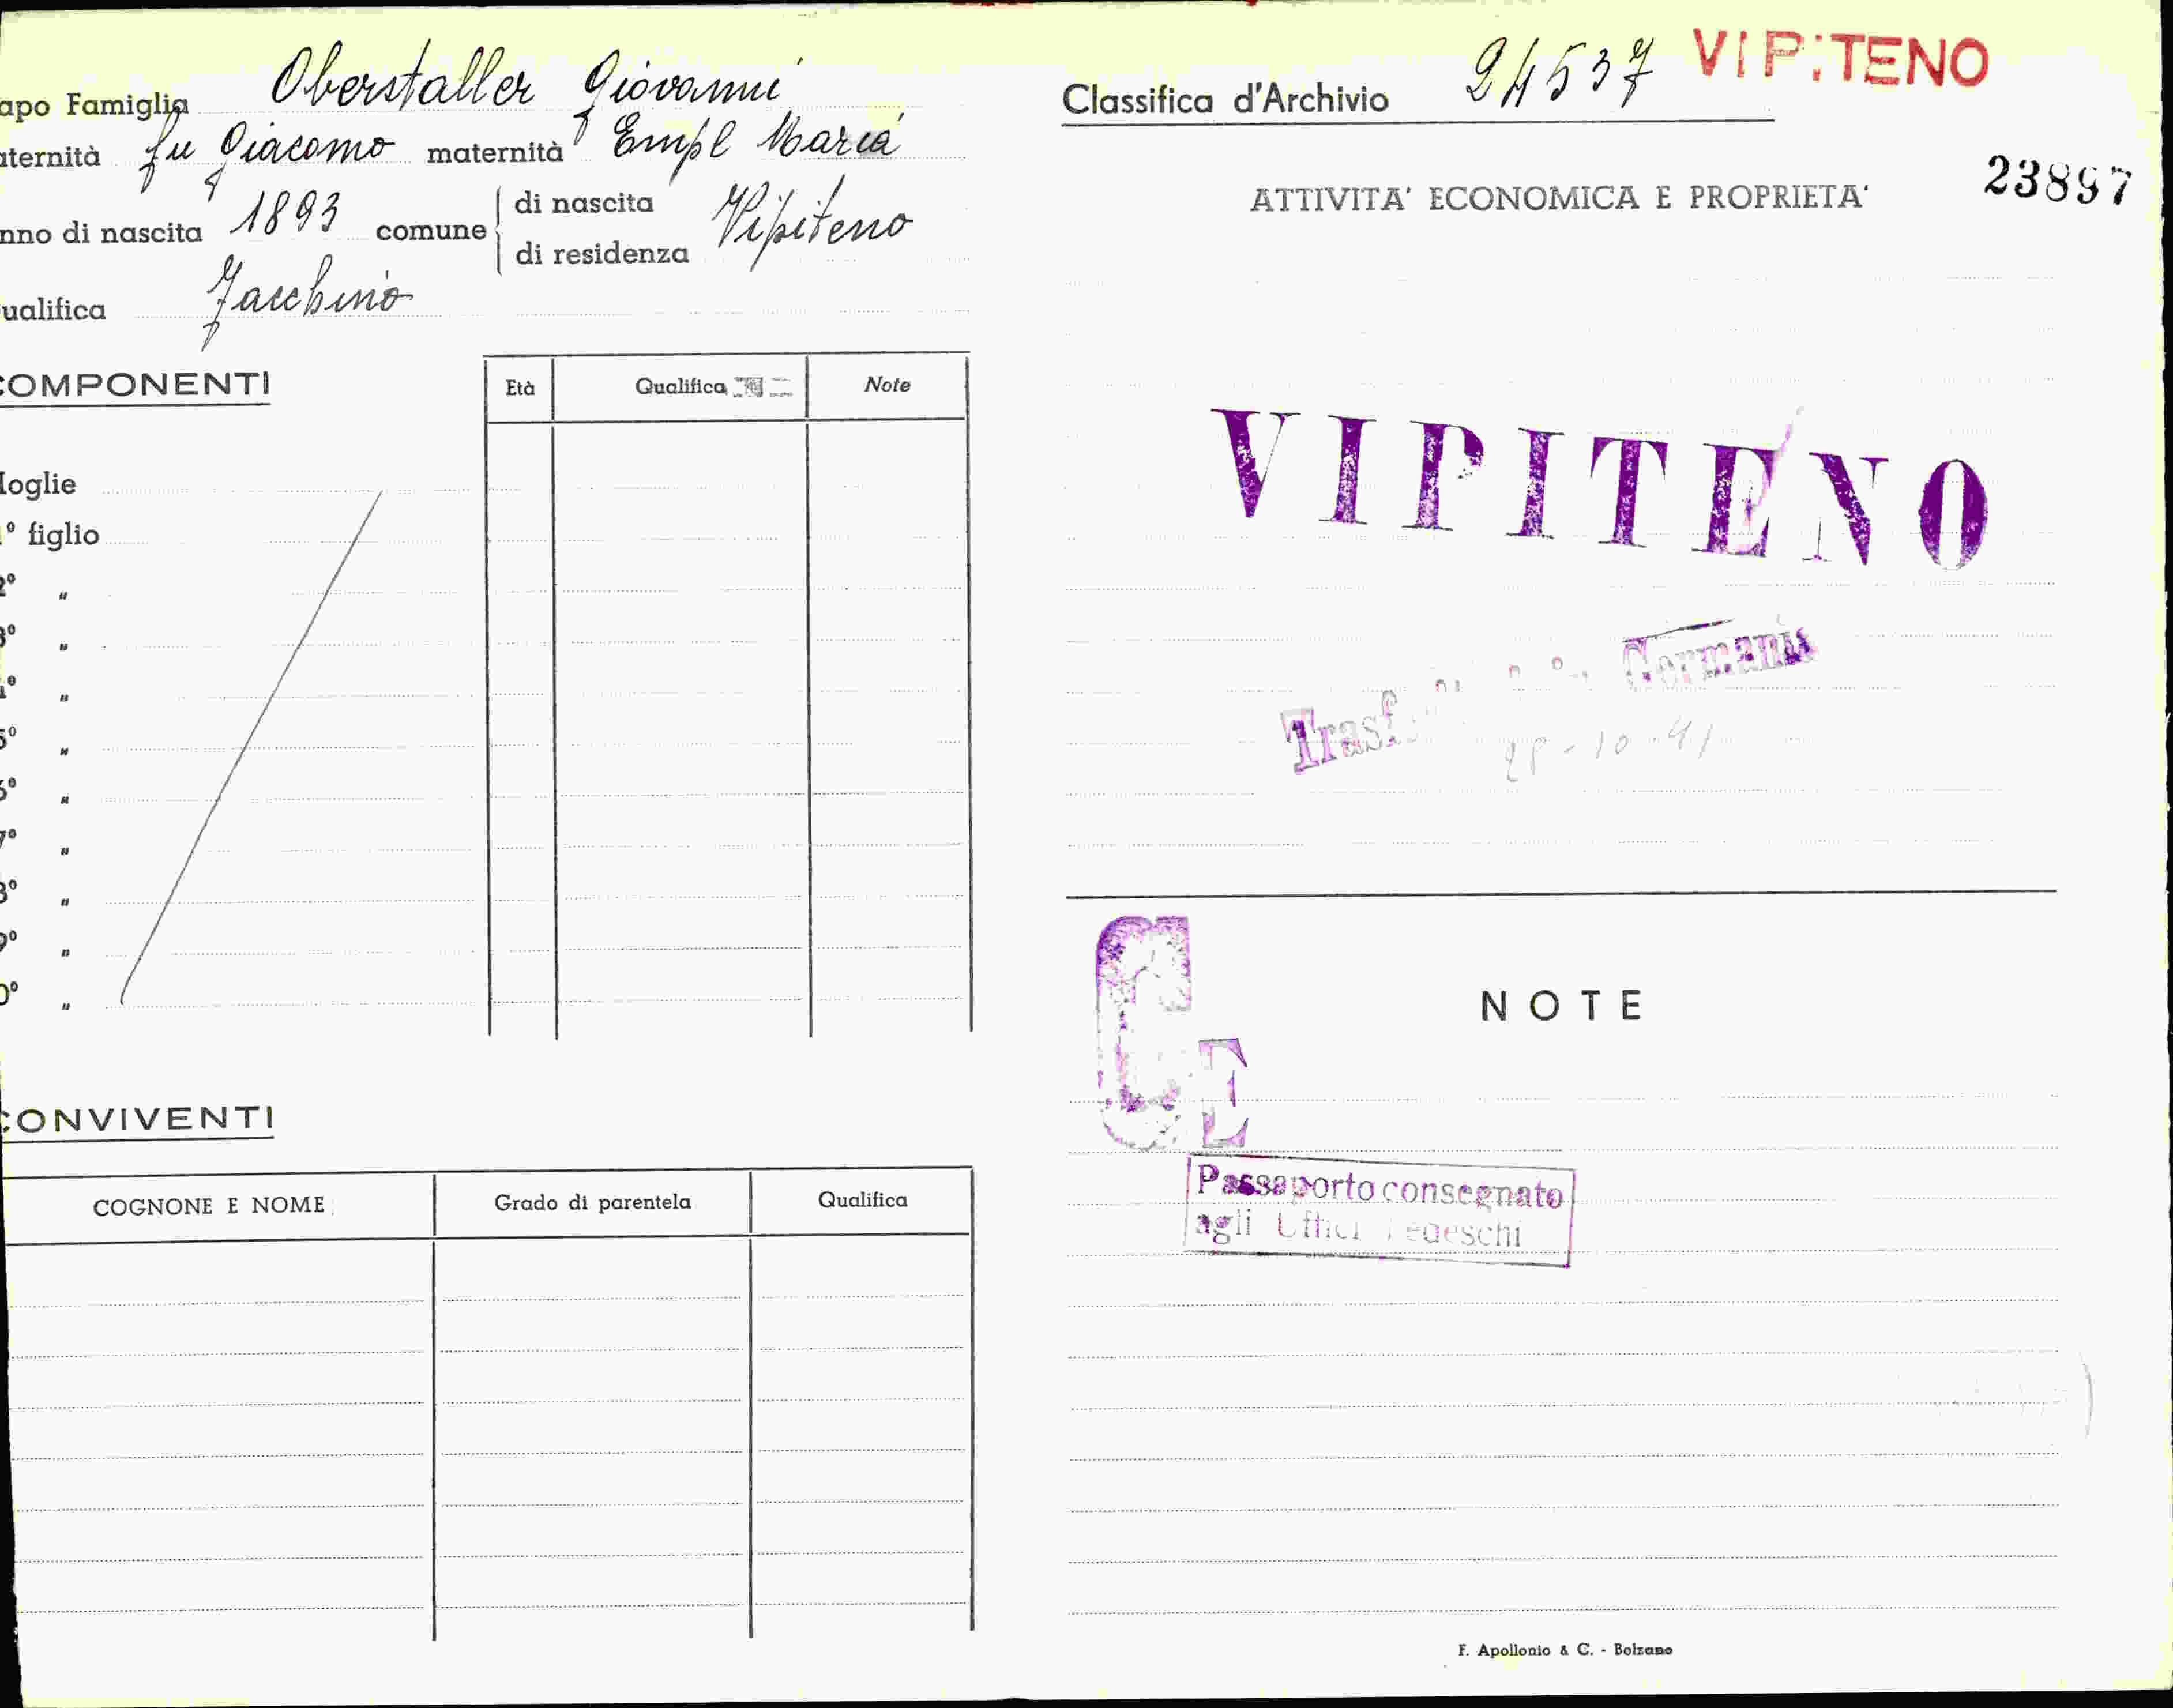 apo Famiglia Oberstaller Giovanni
aternità fu Giacomo maternità Empl Maria
nno di nascita 1893 comune di nascita Vipiteno
di residenza
ualifica Facchino
COMPONENTI
Età Qualifica Note
Moglie
1° figlio
2° "
3° "
4° "
5° "
6° "
7° "
8° "
9° "
0° "
CONVIVENTI
COGNONE E NOME Grado di parentela Qualifica
Classifica d'Archivio 24537 VIPITENO
23897
ATTIVITA' ECONOMICA E PROPRIETA'
VIPITENO
Germania
28-10-41
NOTE
G
E
Passaporto consegnato
agli Uffici Tedeschi
F. Apollonio & C. - Bolzano